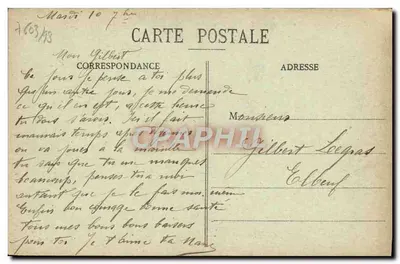 Mardi 10 7bre
7603/93
CARTE POSTALE
Mon Gilbert
CORRESPONDANCE
ADRESSE
Ce jour je pense a toi plus
que un autre jour, je me demande
ce qu'il en est, a cette heure
tu dois savoir. Ici il fait
mauvais temps
on va jouer à la manille
tu sais que tu me manques
beaucoup, penses tu a moi
autant que je le fais moi meme
Enfin bon courage bonne santé
tous mes bons bons baisers
pour toi Je t'aime ta Nane
Monsieur
Gilbert Legras
Elbeuf
CPAPHIL.com